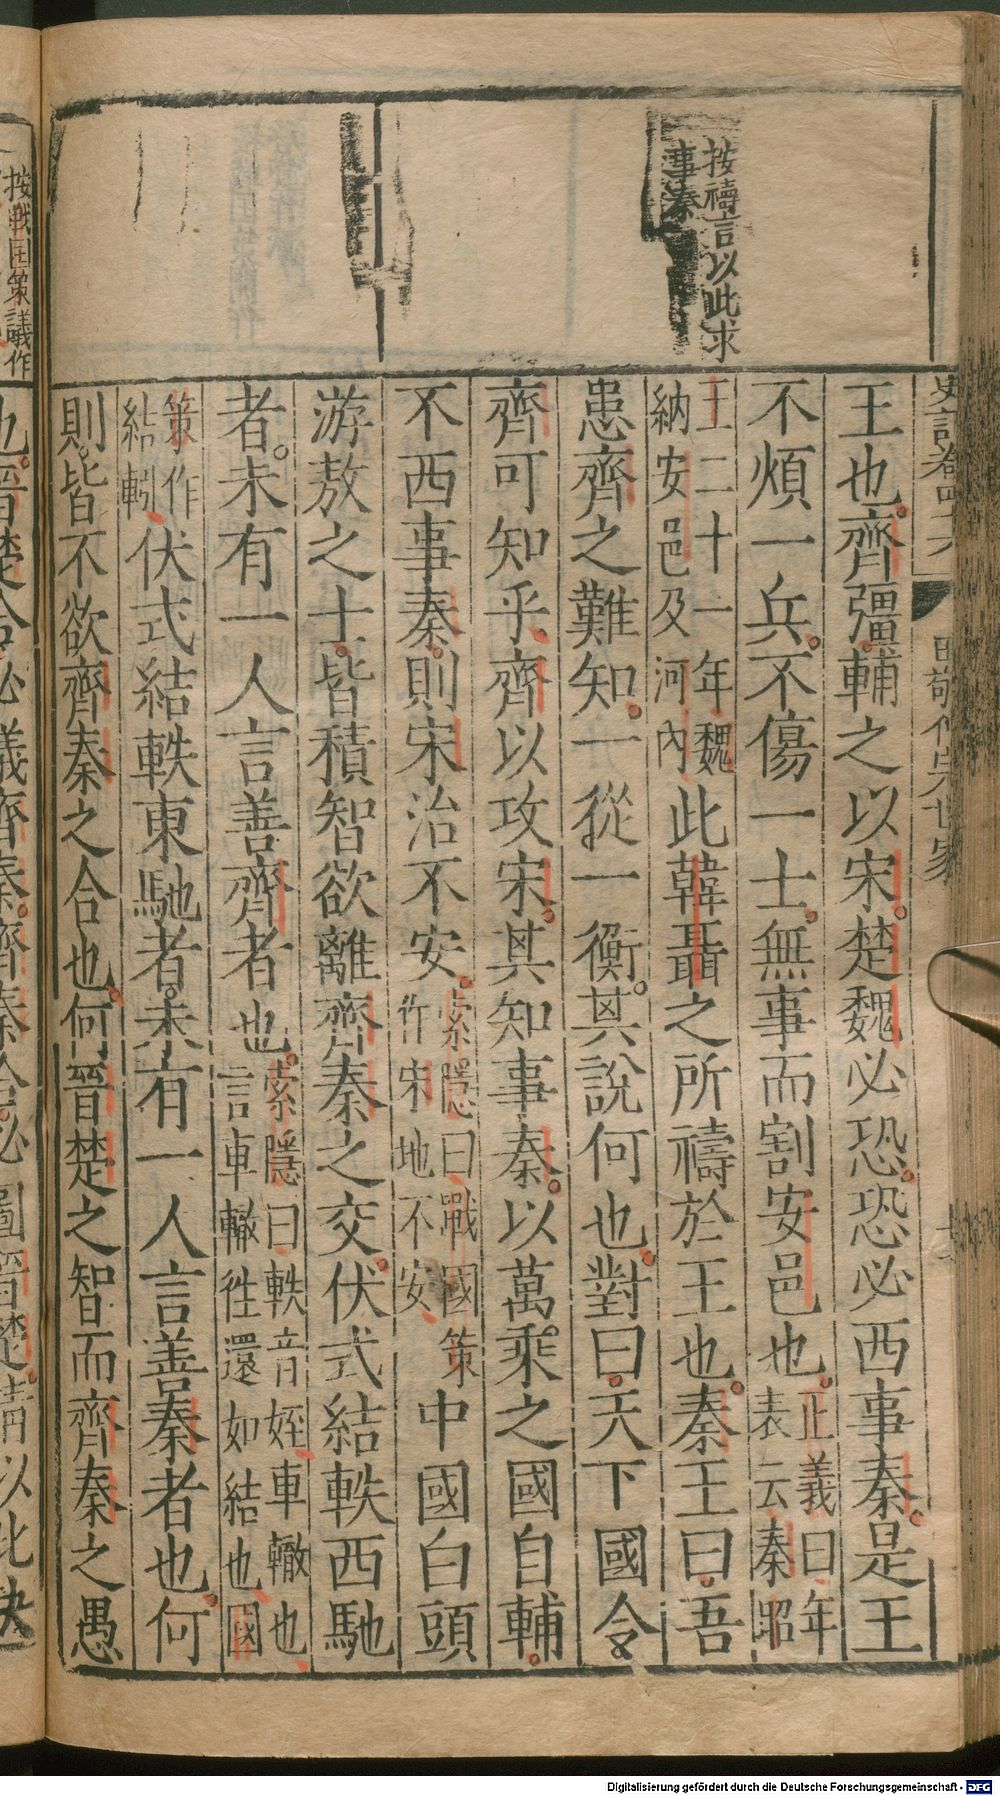 史記卷四十六
田敬仲完世家
按禱言以此求
事秦
王也齊彊輔之以宋楚魏必恐恐必西事秦是王
不煩一兵不傷一士無事而割安邑也正義曰年
表云秦昭
王二十一年魏
納安邑及河內此韓聶之所禱於王也秦王曰吾
患齊之難知一從一衡其說何也對曰天下國令
齊可知乎齊以攻宋其知事秦以萬乘之國自輔
不西事秦則宋治不安索隱曰戰國策
作宋地不安中國白頭
游敖之士皆積智欲離齊秦之交伏式結軼西馳
者未有一人言善齊者也索隱曰軼音姪車轍也
言車轍往還如結也國
策作
結軔伏式結軼東馳者未有一人言善秦者也何
則皆不欲齊秦之合也何晉楚之智而齊秦之愚
按戰国策議作
也晉楚合必議齊秦齊秦合必圖晉楚請以此決
Digitalisierung gefördert durch die Deutsche Forschungsgemeinschaft - DFG